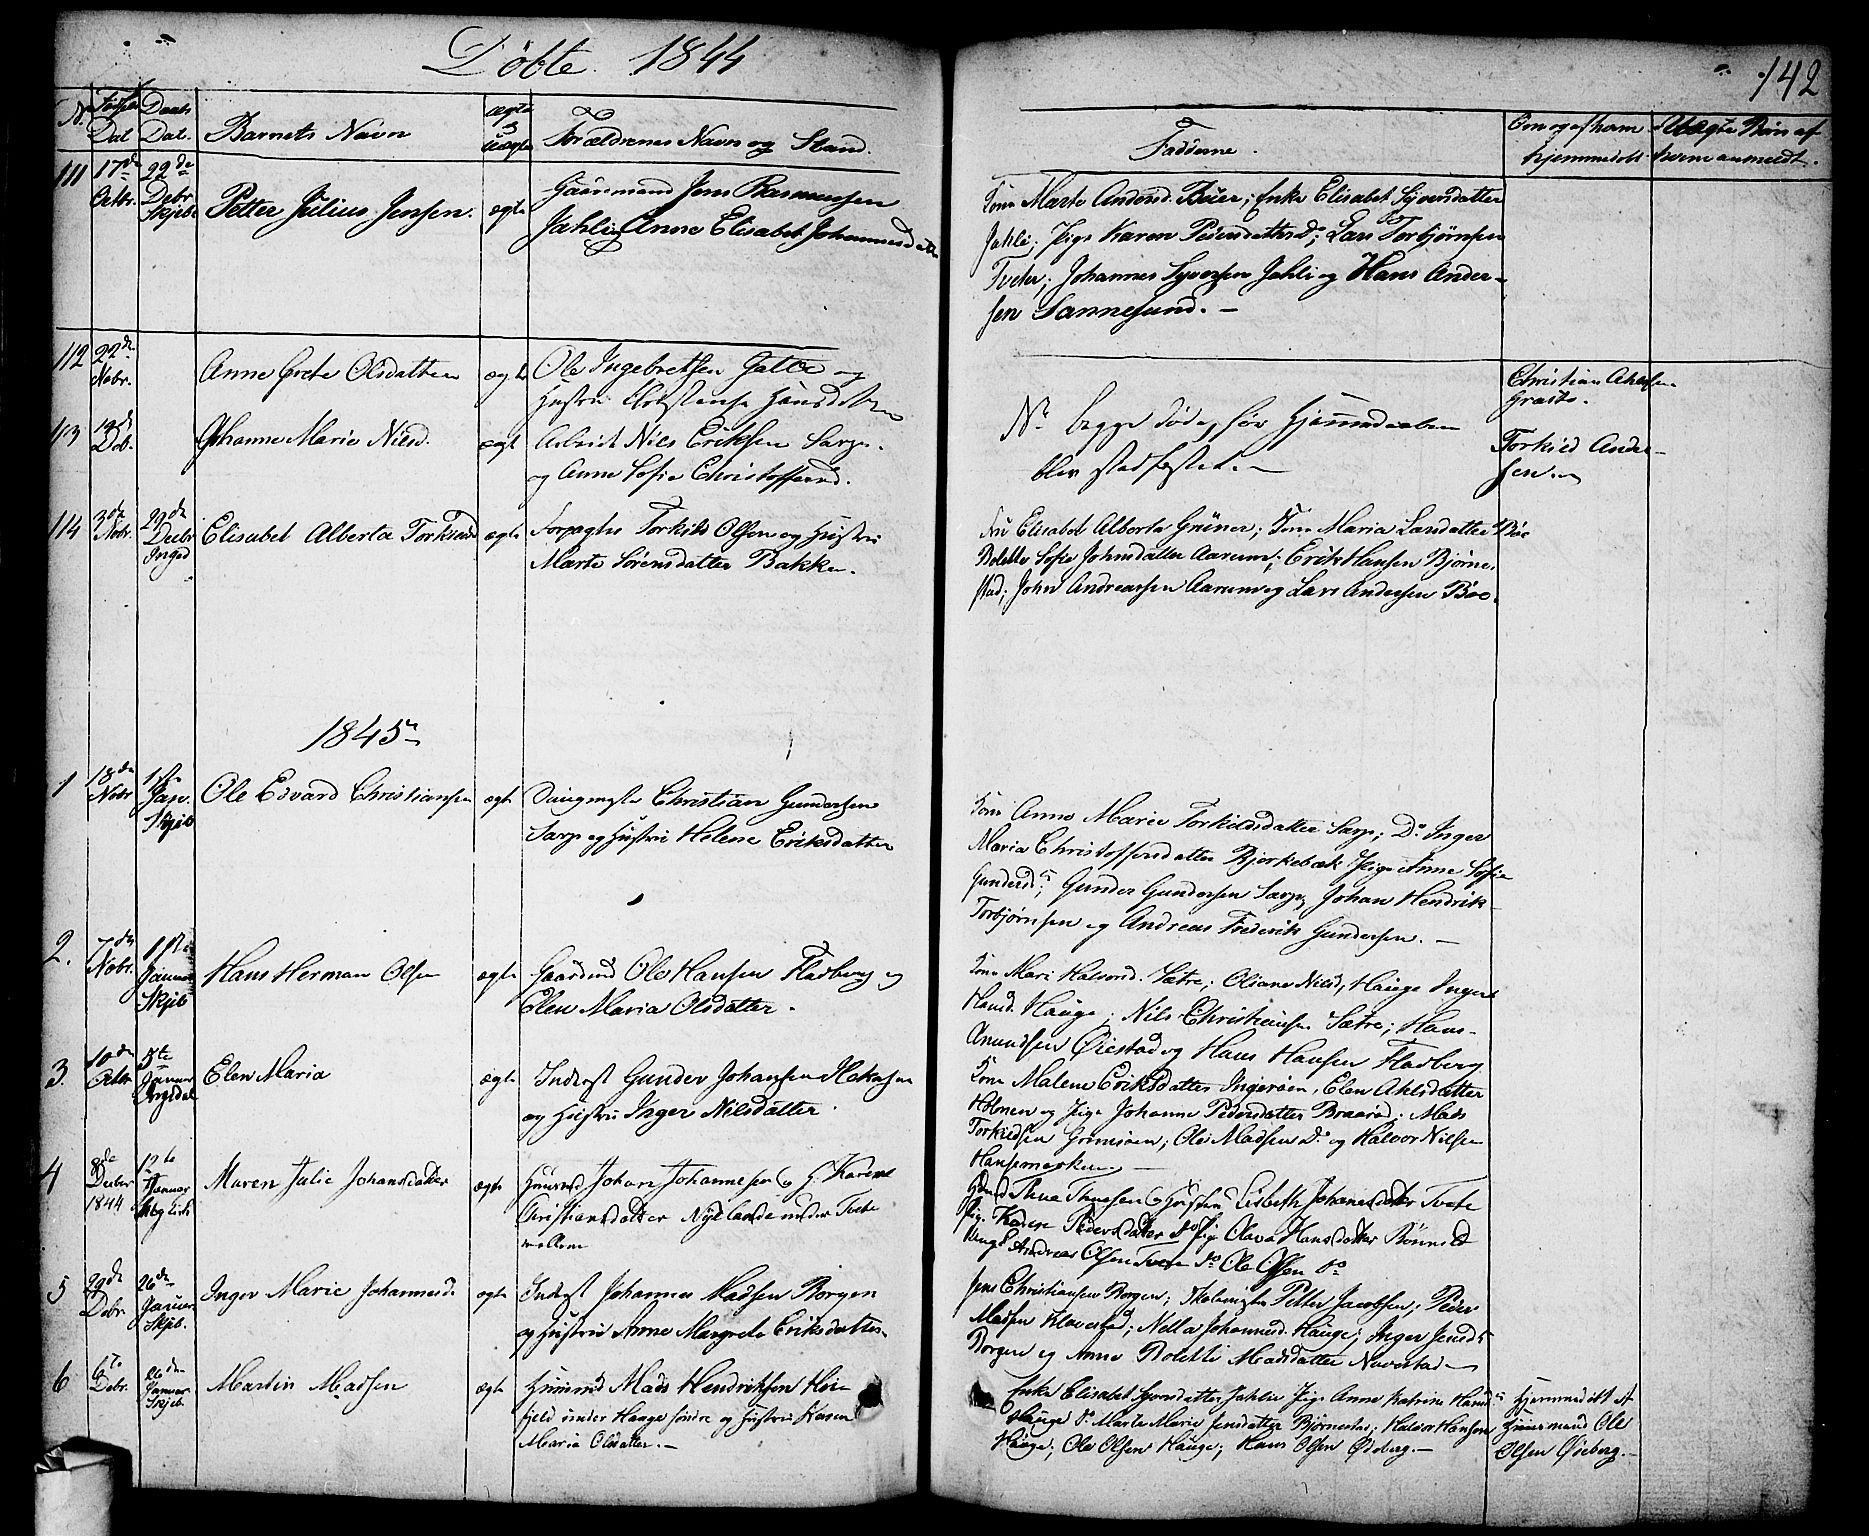 Döbte. 1844
142
N. Födsels Dat Daabs Dat. Barnets Navn ægte uægte Forældrenes Navn og Stand.
Fadderne. Om og af hvem hjemmedöbt Uægte Börn af hvem anmeldt.
111 17de Octbr. 22de Debr Skjeb. Petter Julius Jensen. ægte Gaardmand Jens Rasmussen
Jahli og Anne Elisabet Johannesdatter
Kone Marte Andersd. Böer; Enke Elisabet Syversdatter
Jahli; Pige Karen Pedersdatter Do; Lars Torbjörnsen
Tveter; Johannes Syversen Jahli og Hans Ander-
sen Sannesund. —
112 22de Nobr. Anne Grete Olsdatter ægte Ole Ingebretsen Gatte og
Hustru Hansdatter
Christian
113 19de Deb. Johanne Marie Nilsd. ægte Arbeid. Nils Eriksen Sarps.
og Anne Sofie Christoffersd.
N. begge döde, för Hjemmedaaben
blev stadfæstet. —
Torkild Ander-
sen.
114 3de Nobr. 29de Debr Inged Elisabet Alberta Torkildsd ægte Forpagter Torkild Olsen og Hustru
Marte Sörensdatter Bakke.
Fru Elisabet Alberta Grüner; Kone Maria Larsdatter Böe
Bolette Sofie Johnsdatter Aarum; Erik Hansen Björne-
stad; John Andreassen Aarum og Lars Andersen Böe.
1845
1 18de Nobr 1ste Jan. Skjeb Ole Edvard Christiansen ægte Christian Gundersen
Sarp og Hustru Helene Eriksdatter
Kone Anne Marie Torkildsdatter Sarp; Do Inger
Maria Christoffersdatter Bjerkebæk Pige Anne Sofie
Gundersd; Gunder Gundersen Sarp, Johan Hendrik
Torbjörnsen og Andreas Frederik Gundersen. —
2. 7de Nobr. 1ste Januar Skjeb Hans Herman Olsen ægte Gaardmd Ole Hansen Flatberg og
Elen Maria Olsdatter.
Kone Mari Halvorsd. Sætre; Oliane Nilsd, Hauge Inger
Hansd. Hauge; Nils Christiansen Sætre; Hans
Amundsen Öiestad og Hans Hansen Flatberg
3. 10de Octbr 5te Januar Ingedal Elen Maria ægte Inderst Gunder Johansen
og Hustru Inger Nilsdatter.
Kone Malene Eriksdatter Ingeröen, Elen
Holmen og Pige Johanne Pedersdatter Braaröd; Mads
Torkildsen Grimsöen; Ole Madsen Do og Halvor Nilsen
Hansemarken. —
4 8de Debr 1844 12te Januar Maren Julie Johansdatter ægte Huusmd Johan Johannesen og H. Karine
Christiansdatter Nylande under Tvete
mellem
Thue Thuesen og Hustru Lisbeth Johannesdatter Tvete
Pige Karen Pedersdatter do Pige Olava Hansdatter Rönneld
Ungk. Andreas Olsen Tvete do Ole Olsen do
5 29de Debr. 26de Januar Skjeb. Inger Marie Johannesd ægte Inderst Johannes Madsen Borgen
og Hustru Anne Margrete Eriksdatter.
Jens Christiansen Borgen; Skolemester Petter Jacobsen; Peder
Madsen Klavestad; Nella Johannesd. Hauge; Inger Jensd
Borgen og Anne Bolette Madsdatter Navestad —
6 6te Debr. 26de Januar Skjeb. Martin Madsen ægte Huusmd Mads Hendriksen Höi-
fjeld under Hauge söndre og Hustru Karen
Maria Olsdatter. —
Enke Elisabet Syversdatter Jahlie Pige Anne Katrine Hansd
Hauge do Marte Marie Jensdatter Björnestad; Halvor Hansen
Hauge; Ole Olsen Hauge; Hans Olsen Ödeberg. —
Hjemmedöbt af
Huusmand Ole
Olsen Ödeberg. —